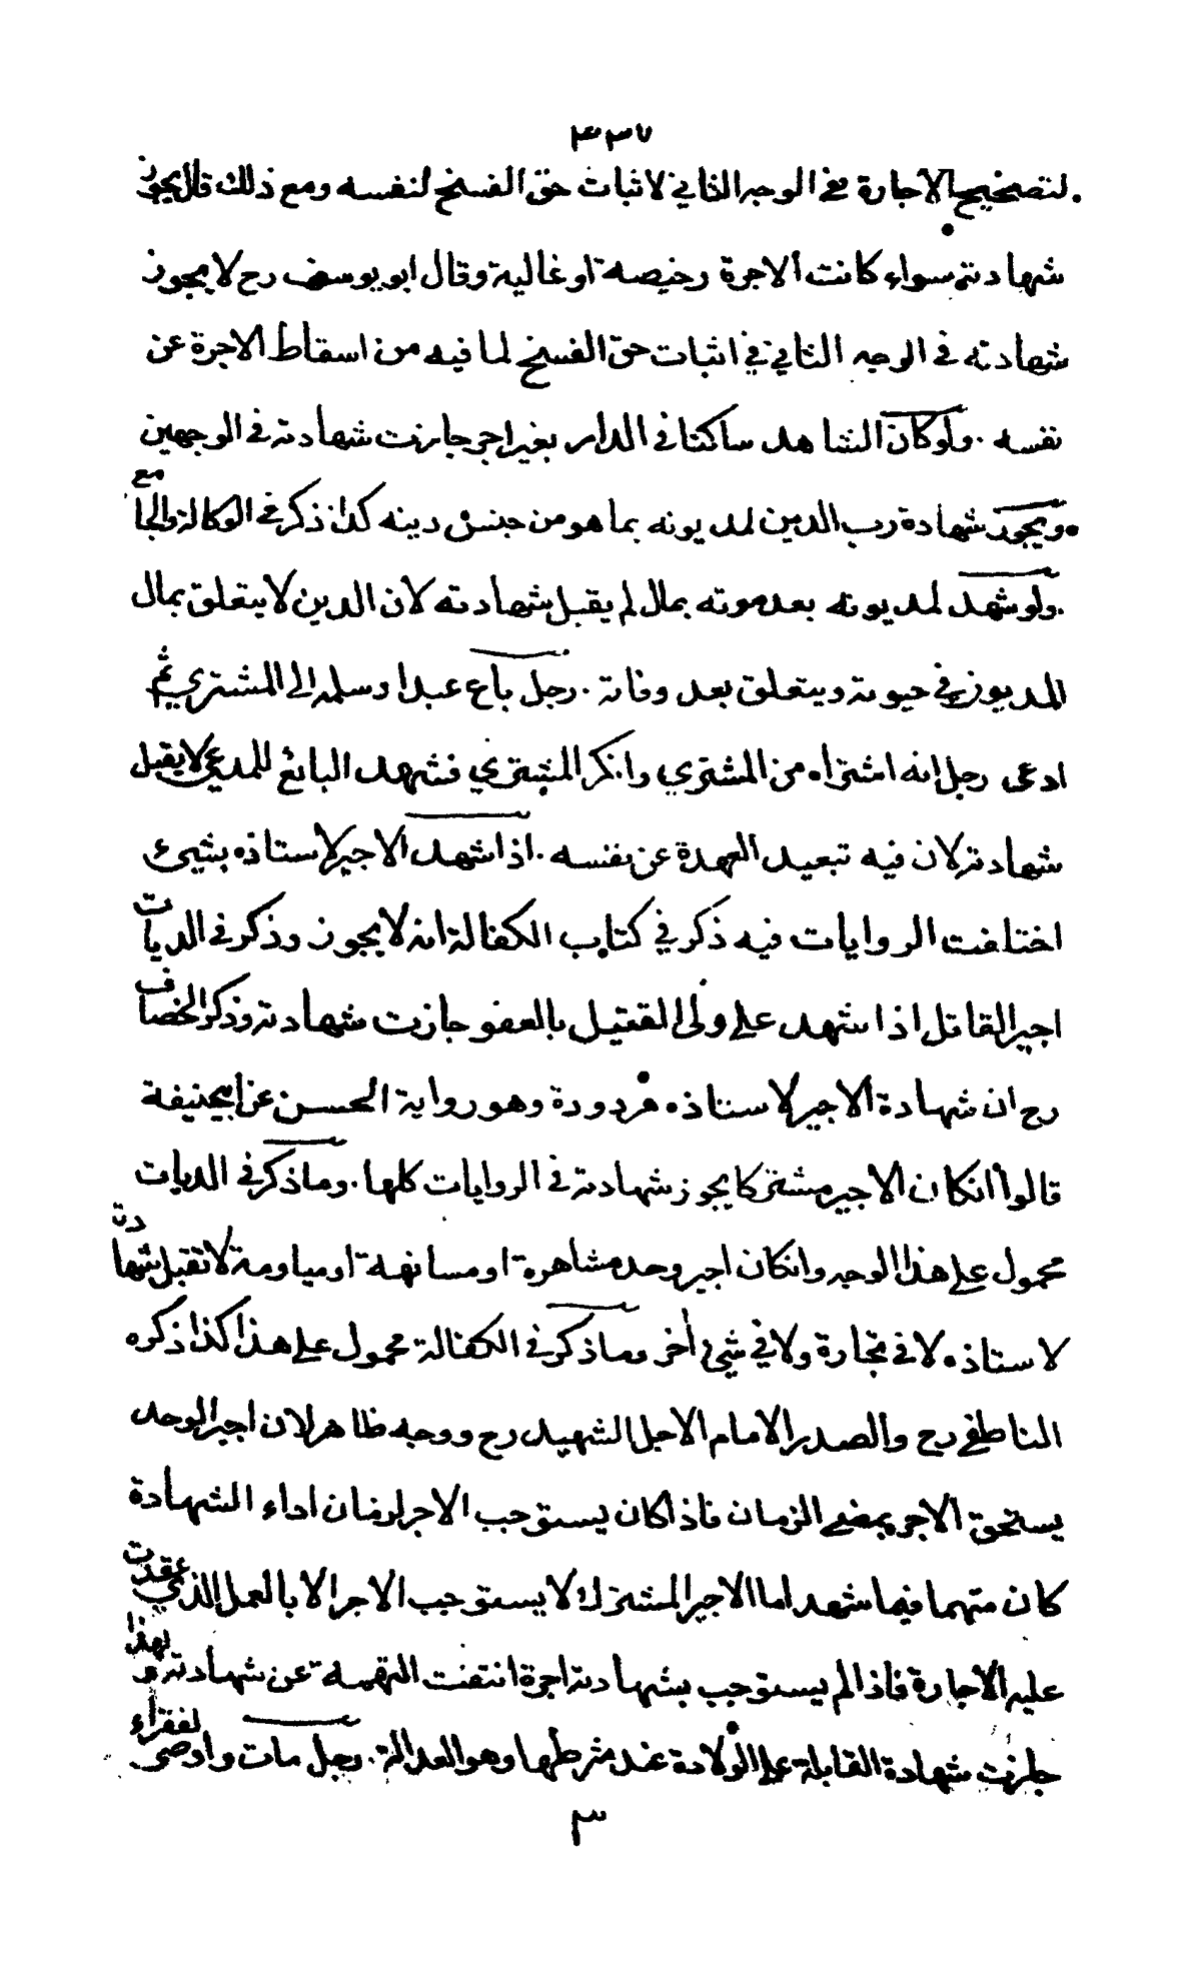 ٤٣٧
لتصحيح الاجارة وفي الوجه الثاني لاثبات حق الفسخ لنفسه ومع ذلك قال يجوز
شهادته سواء كانت الاجرة رخيصة اوغالية وقال ابو يوسف رح لا يجوز
شهادته في الوجه الثاني في اثبات حق الفسخ لما فيه من اسقاط الاجرة عن
نفسه . ولو كان الشاهد ساكنا في الدار بغير اجر جازت شهادته في الوجهين
ويجوز شهادة رب الدين لمديونه بما هو من جنس دينه كذا ذكر في الوكالة والجامع
. ولو شهد لمديونه بعد موته بمال لم يقبل شهادته لان الدين لا يتعلق بمال
المديون في حيوته ويتعلق بعد وفاته . رجل باع عبدا وسلمه الى المشتري ثم
ادعى رجل انه اشتراه من المشتري وانكر المشتري فشهد البائع للمدعي لا يقبل
شهادته لان فيه تبعيد العهدة عن نفسه . اذا شهد الاجير لاستاذه بشيء
اختلفت الروايات فيه ذكر في كتاب الكفالة انه لا يجوز وذكر في الديات
اجير القاتل اذا شهد على ولى القتيل بالعفو جازت شهادته وذكر الخصاف
رح ان شهادة الاجير لاستاذه مردودة وهو رواية الحسن عن ابيحنيفة
قالوا انكان الاجير مشتركا يجوز شهادته في الروايات كلها . وما ذكر في الديات
محمول على هذا الوجه وانكان اجير وحد مشاهرة او مسانهة او مياومة لا تقبل شهادته
لاستاذه لا في تجارة ولا في شيء أخر وما ذكر في الكفالة محمول على هذا كذا ذكره
الناطفي رح والصدر الامام الاجل الشهيد رح ووجه ظاهر لان اجير الوحد
يستحق الاجر بمضي الزمان فاذا كان يستوجب الاجر لزمان اداء الشهادة
كان متهما فيما شهد اما الاجير المشترك لا يستوجب الاجر الا بالعمل الذي عقدت
عليه الاجارة فاذا لم يستوجب بشهادته اجرة انتفت التهمة عن شهادته ولهذا
جازت شهادة القابلة على الولادة عند شرطها وهو العدالة . رجل مات واوصى لفقراء
٣